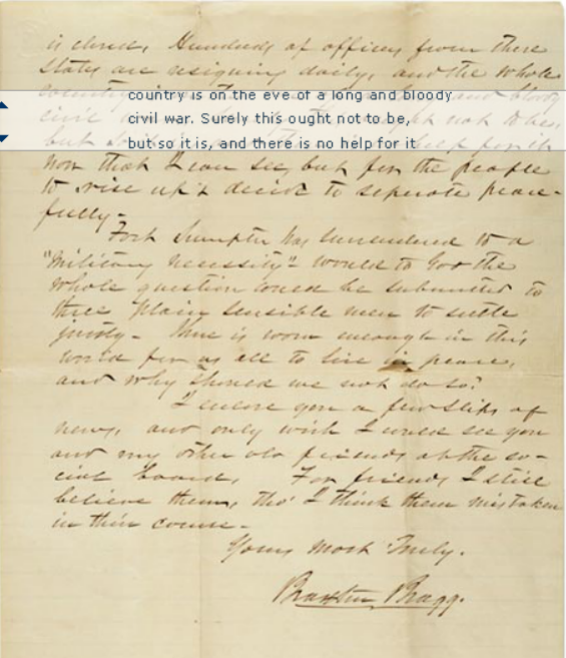 is closed, Hundreds of officers from these
States are resigning daily, and the whole
country is on the eve of a long and bloody
civil war. Surely this ought not to be,
but so it is, and there is no help for it
now that I can see, but for the people
to rise up & decide to seperate peace-
fully-
Fort Sumpter has surrendered to a
"military necessity" would to God the
whole question could be submitted to
three plain sensible men to settle
justly- There is room enough in this
world for us all to live in peace,
and why should we not do so?
I enclose you a few slips of
news, and only wish I could see you
and my other old friends at the so-
cial board, For friends I still
believe them, tho' I think them mistaken
in their course-
Yours most Truly.
Braxton Bragg.